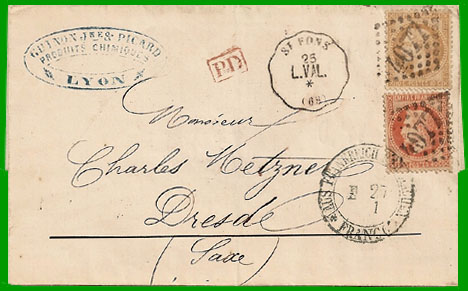 GUINON JNE & PICARD
PRODUITS CHIMIQUES
LYON
P.D.
ST FONS
25
L.VAL.
*
(68)
Monsieur
Charles Metzner
Dresde
(Saxe)
AUS FRANKREICH
27
1
FRANCO